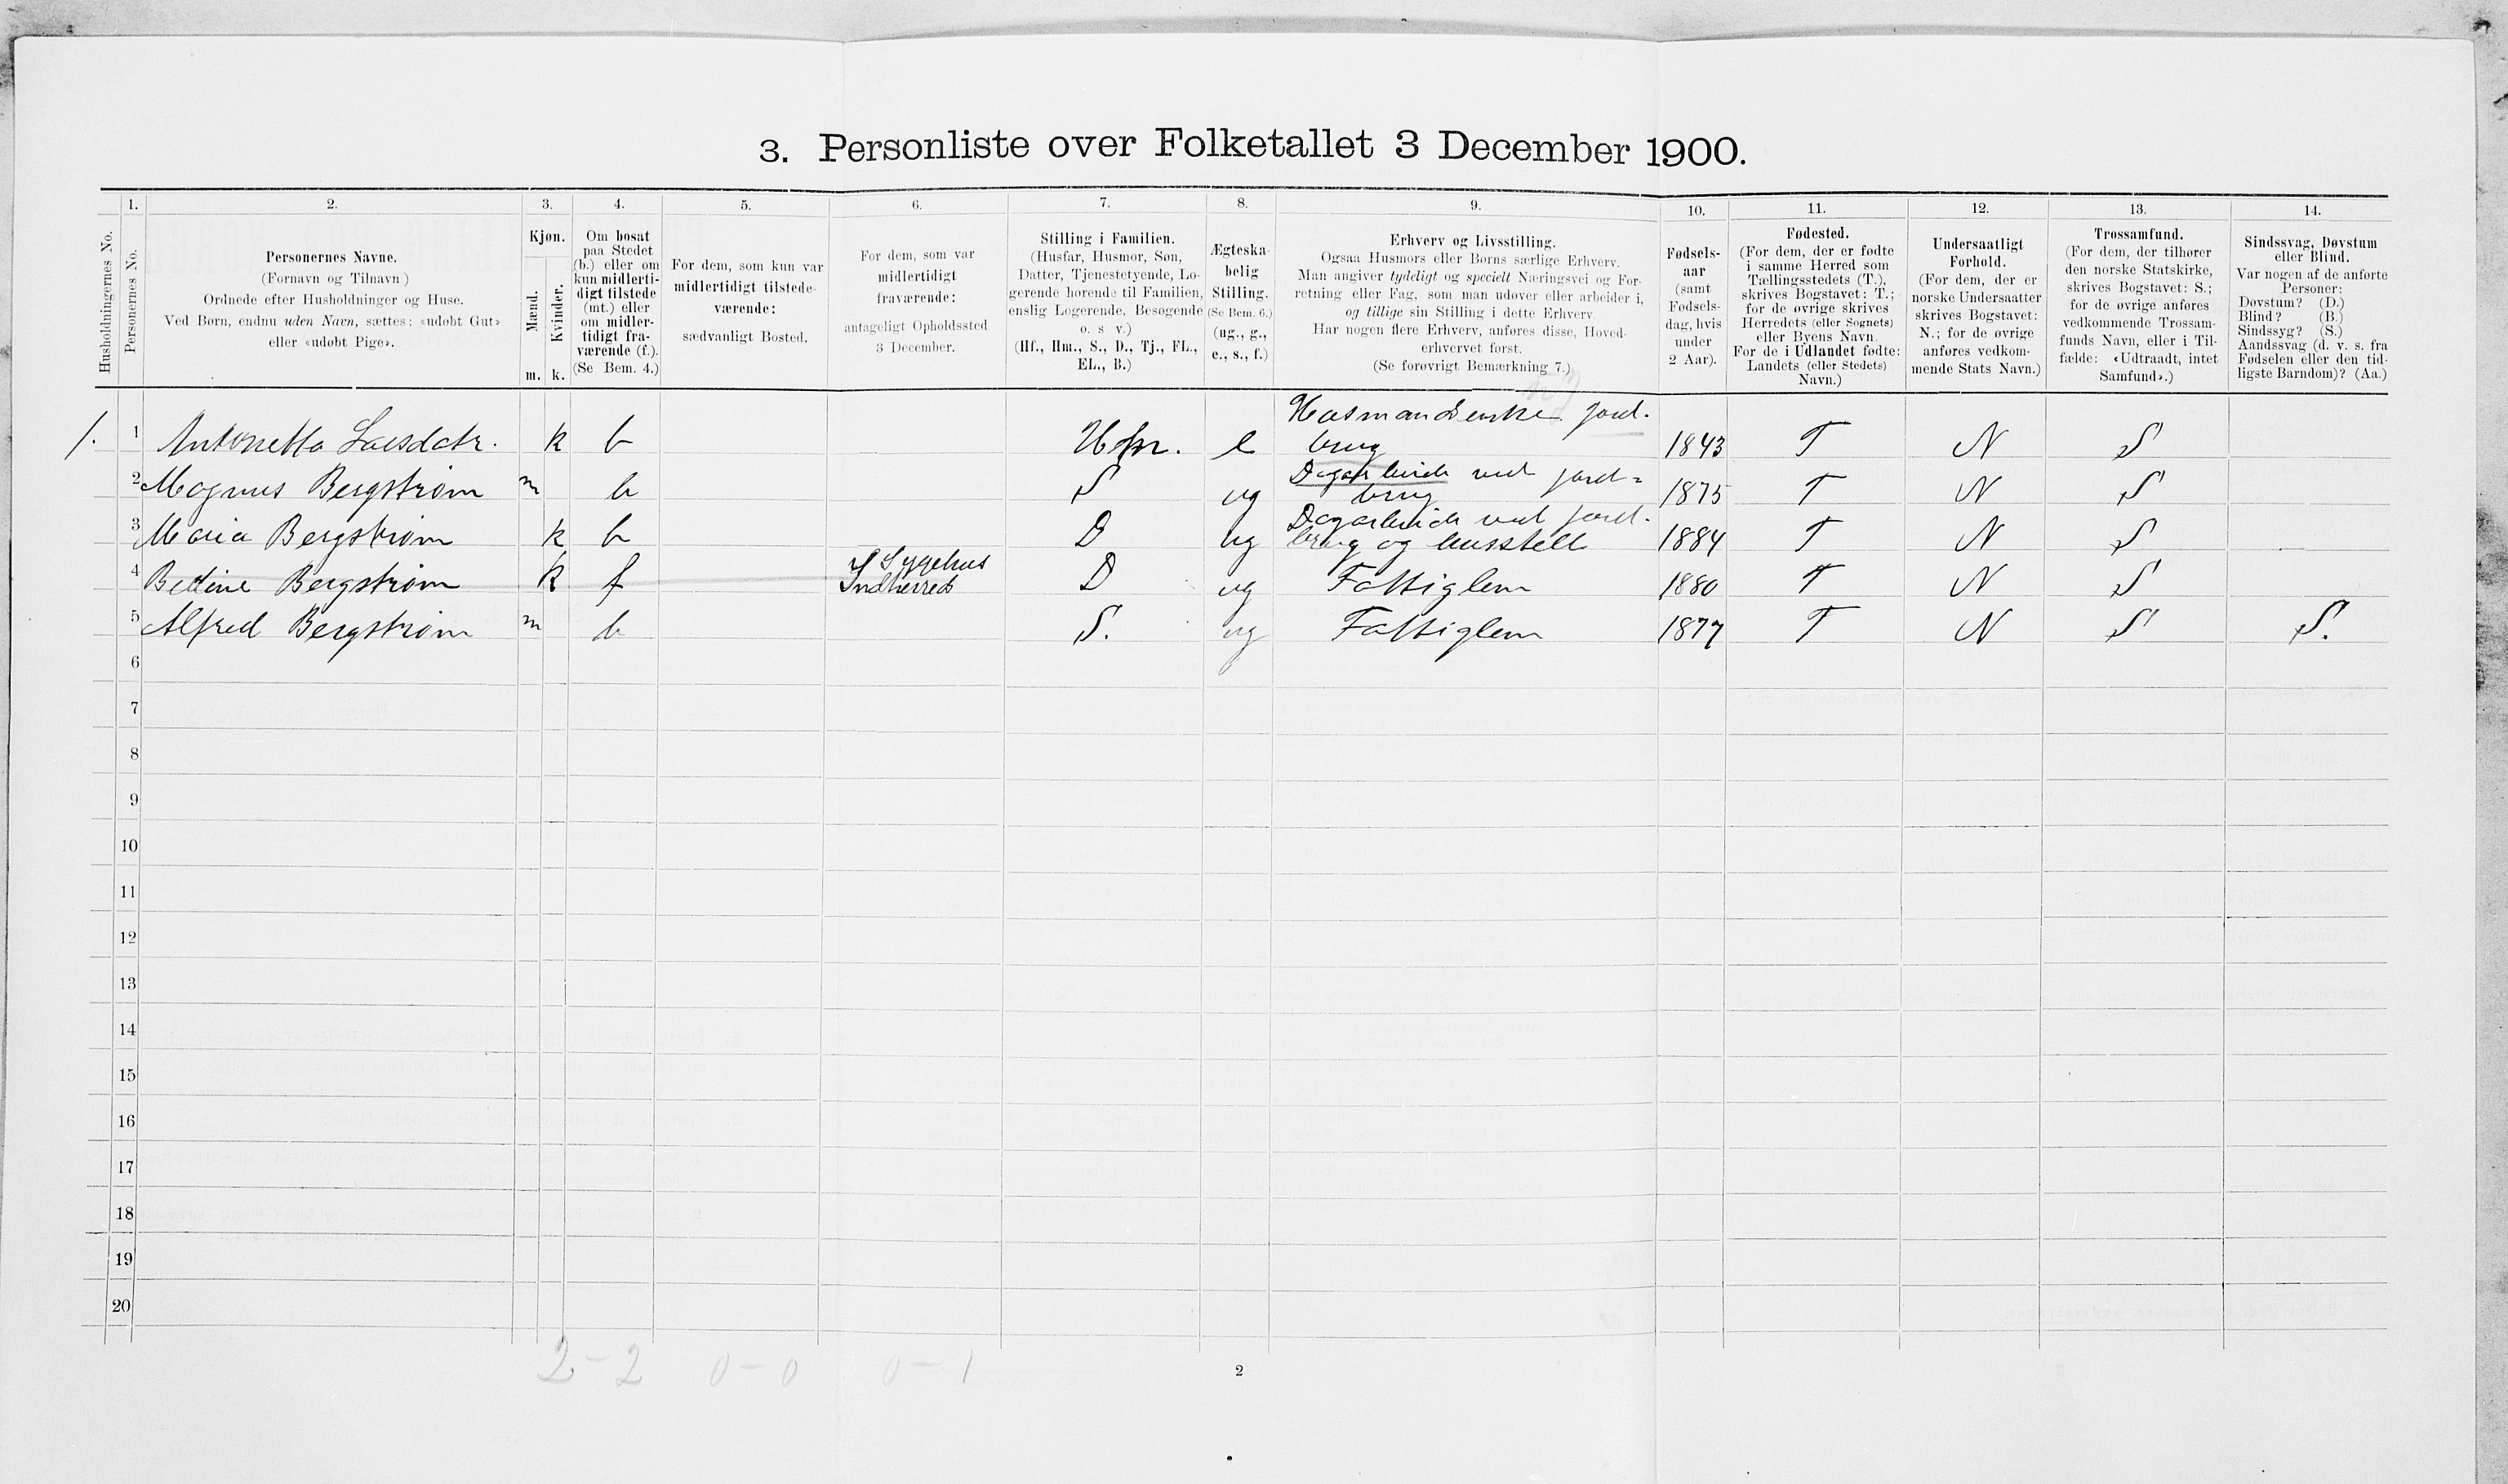 3. Personliste over Folketallet 3 December 1900.
Husholdningernes No.
1.
Personernes No.
2.
Personernes Navne.
(Fornavn og Tilnavn)
Ordnede efter Husholdninger og Huse.
Ved Børn, endnu uden Navn, sættes: «udøbt Gut»
eller «udøbt Pige».
3.
Kjøn.
Mænd.
Kvinder.
m. k.
4.
Om bosat
paa Stedet
(b.) eller om
kun midlerti-
digt tilstede
(mt.) eller
om midler-
tidigt fra-
værende (f.).
(Se Bem. 4.)
5.
For dem, som kun var
midlertidigt tilstede-
værende:
sædvanligt Bosted.
6.
For dem, som var
midlertidigt
fraværende:
antageligt Opholdssted
3 December.
7.
Stilling i Familien.
(Husfar, Husmor, Søn,
Datter, Tjenestetyende, Lo-
gerende hørende til Familien,
enslig Logerende, Besøgende
o. s v.)
(Hf., Hm., S., D., Tj., FL.,
EL., B.)
8.
Ægteska-
belig
Stilling.
(Se Bem. 6.)
(ug., g.,
e., s., f.)
9.
Erhverv og Livsstilling.
Ogsaa Husmors eller Børns særlige Erhverv.
Man angiver tydeligt og specielt Næringsvei og For-
retning eller Fag, som man udøver eller arbeider i,
og tillige sin Stilling i dette Erhverv.
Har nogen flere Erhverv, anføres disse, Hoved-
erhvervet først.
(Se forøvrigt Bemærkning 7.)
10.
Fødsels-
aar
(samt
Fødsels-
dag, hvis
under
2 Aar).
11.
Fødested.
(For dem, der er fødte
i samme Herred som
Tællingsstedets (T.),
skrives Bogstavet: T.;
for de øvrige skrives
Herredets (eller Sognets)
eller Byens Navn.
For de i Udlandet fødte:
Landets (eller Stedets)
Navn.)
12.
Undersaatligt
Forhold.
(For dem, der er
norske Undersaatter
skrives Bogstavet:
N.; for de øvrige
anføres vedkom-
mende Stats Navn.)
13.
Trossamfund.
(For dem, der tilhører
den norske Statskirke,
skrives Bogstavet: S.;
for de øvrige anføres
vedkommende Trossam-
funds Navn, eller i Til-
fælde: «Udtraadt, intet
Samfund».)
14.
Sindssvag, Døvstum
eller Blind.
Var nogen af de anførte
Personer:
Døvstum? (D.)
Blind? (B.)
Sindssyg? (S.)
Aandssvag (d. v. s. fra
Fødselen eller den tid-
ligste Barndom)? (Aa.)
1. 1 Antonetta Larsdatr. k b e Husmandsenke jord-
brug 1843 T N S
2 Magnus Bergstrøm m b S ug Dagarbeide ved jord=
brug 1875 T N S
3 Maria Bergstrøm k b D ug Dagarbeide ved jord-
brug og husstell 1884 T N S
4 Bettine Bergstrøm k f I Sygehus
Indherred D ug Fattiglem 1880 T N S
5 Alfred Bergstrøm m b S. ug Fattiglem 1877 T N S S.
6
7
8
9
10
11
12
13
14
15
16
17
18
19
20
2-2 0-0 0-1
2